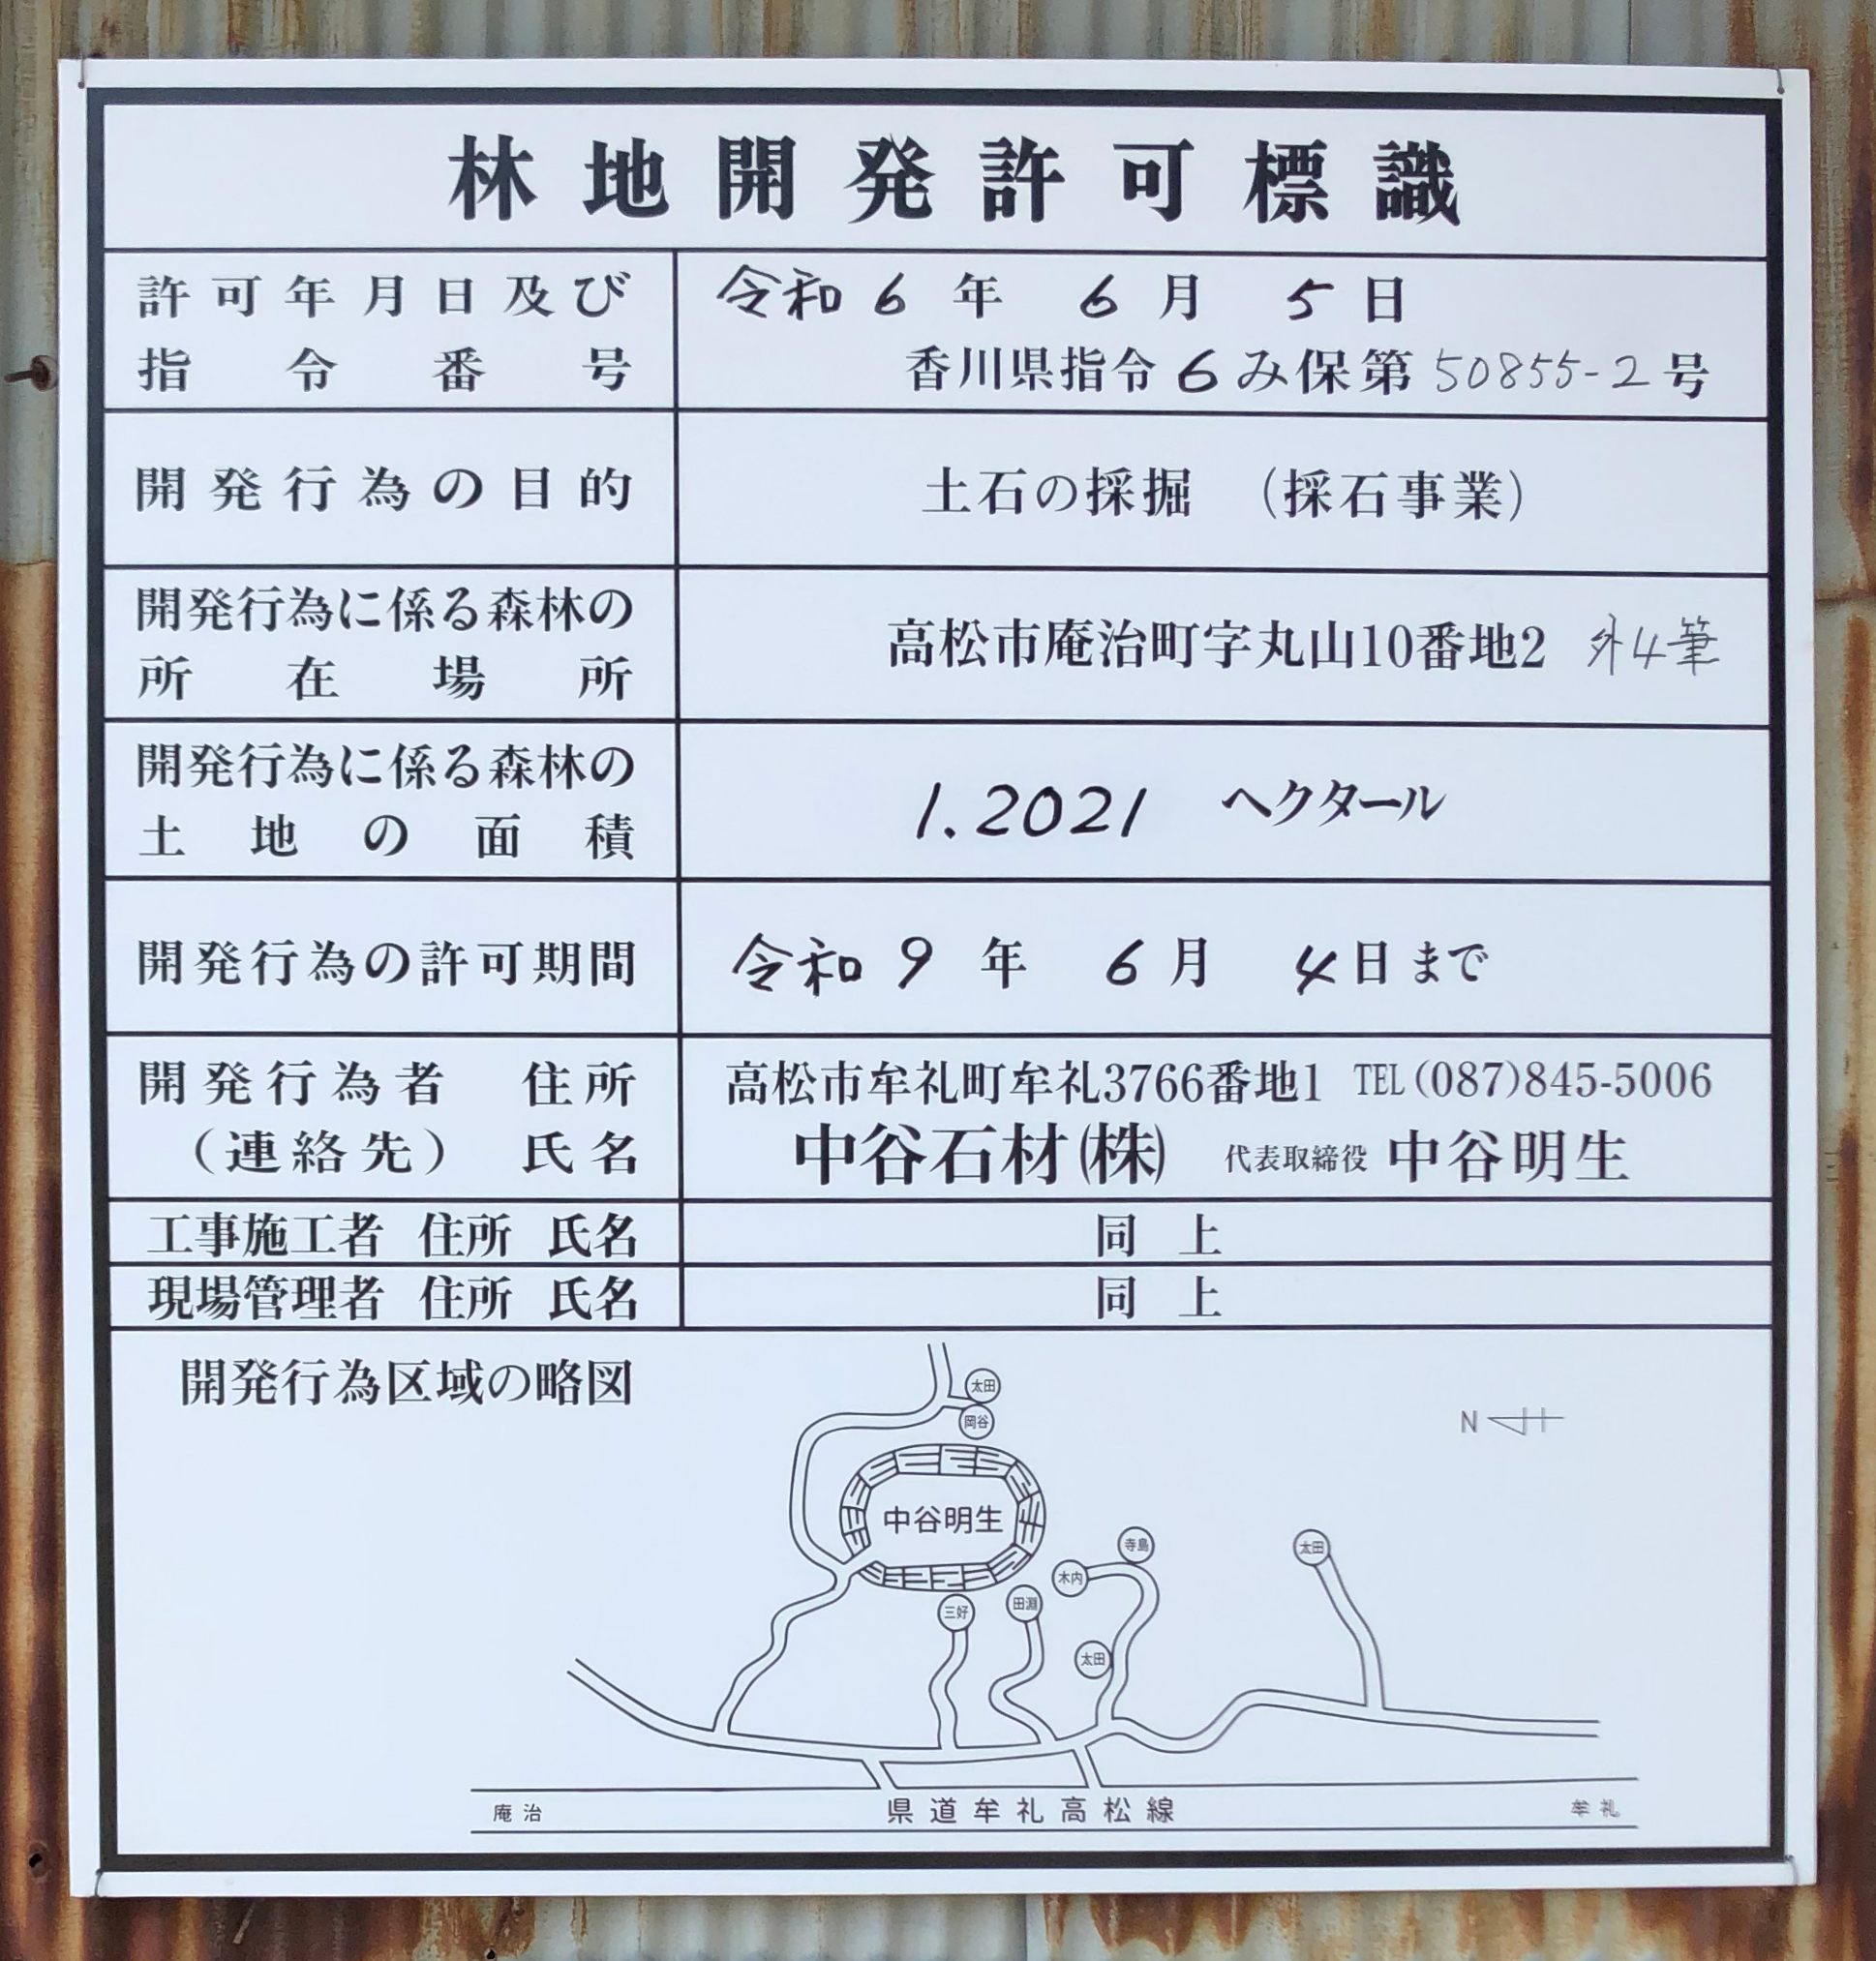 林地開発許可標識
許可年月日及び
指令番号
令和6年 6月 5日
香川県指令6み保第50855-2号
開発行為の目的
土石の採掘 （採石事業）
開発行為に係る森林の
所在場所
高松市庵治町字丸山10番地2 外4筆
開発行為に係る森林の
土地の面積
1.2021 ヘクタール
開発行為の許可期間
令和9年 6月 4日まで
開発行為者 住所
（連絡先） 氏名
高松市牟礼町牟礼3766番地1 TEL(087)845-5006
中谷石材(株) 代表取締役 中谷明生
工事施工者 住所 氏名
同上
現場管理者 住所 氏名
同上
開発行為区域の略図
太田
岡谷
N
中谷明生
寺島
太田
木内
田淵
三好
太田
庵治
県道牟礼高松線
牟礼